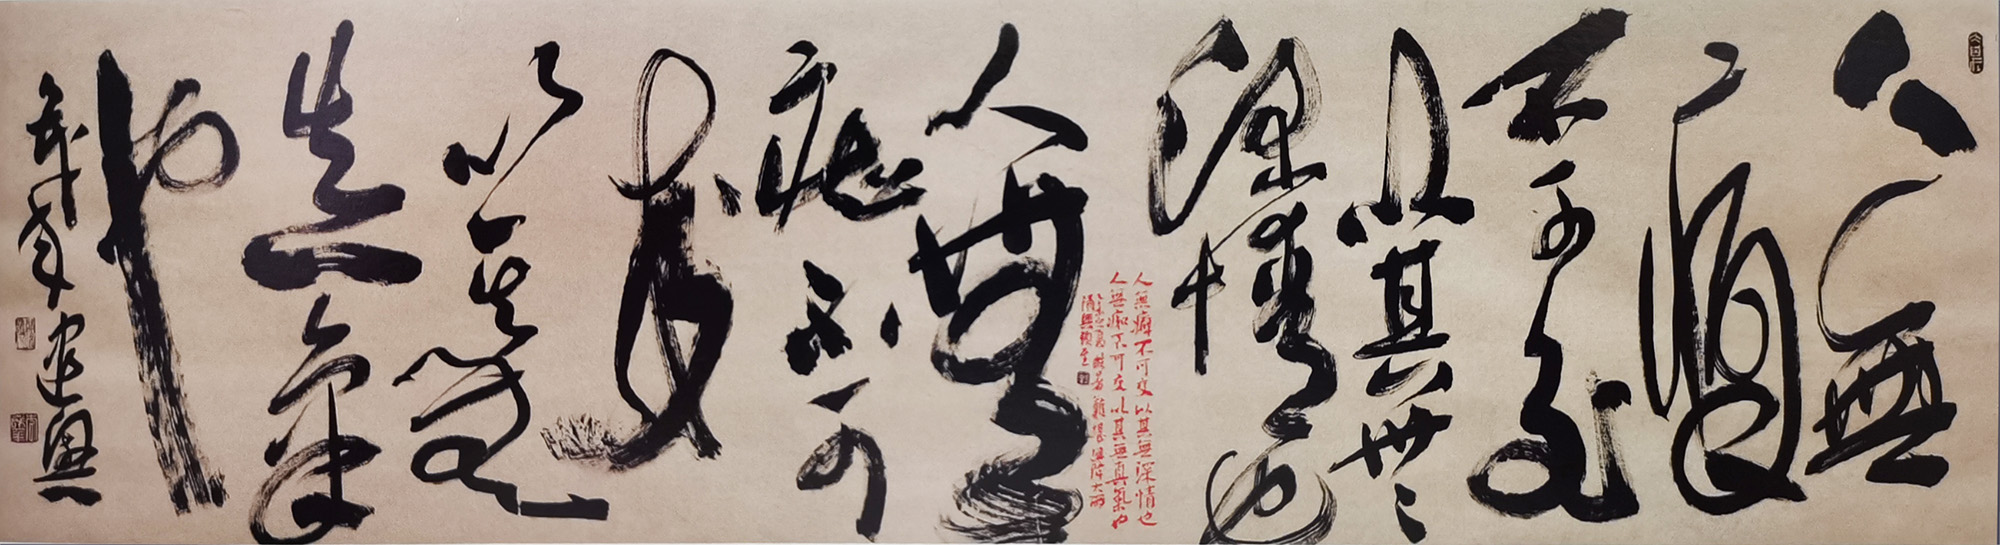 人無
癖
不可交
以其無
深情也
人無癖不可交以其無深情也
人無痴不可交以其無真氣也
人無
痴不可
交
以其無
真氣
也